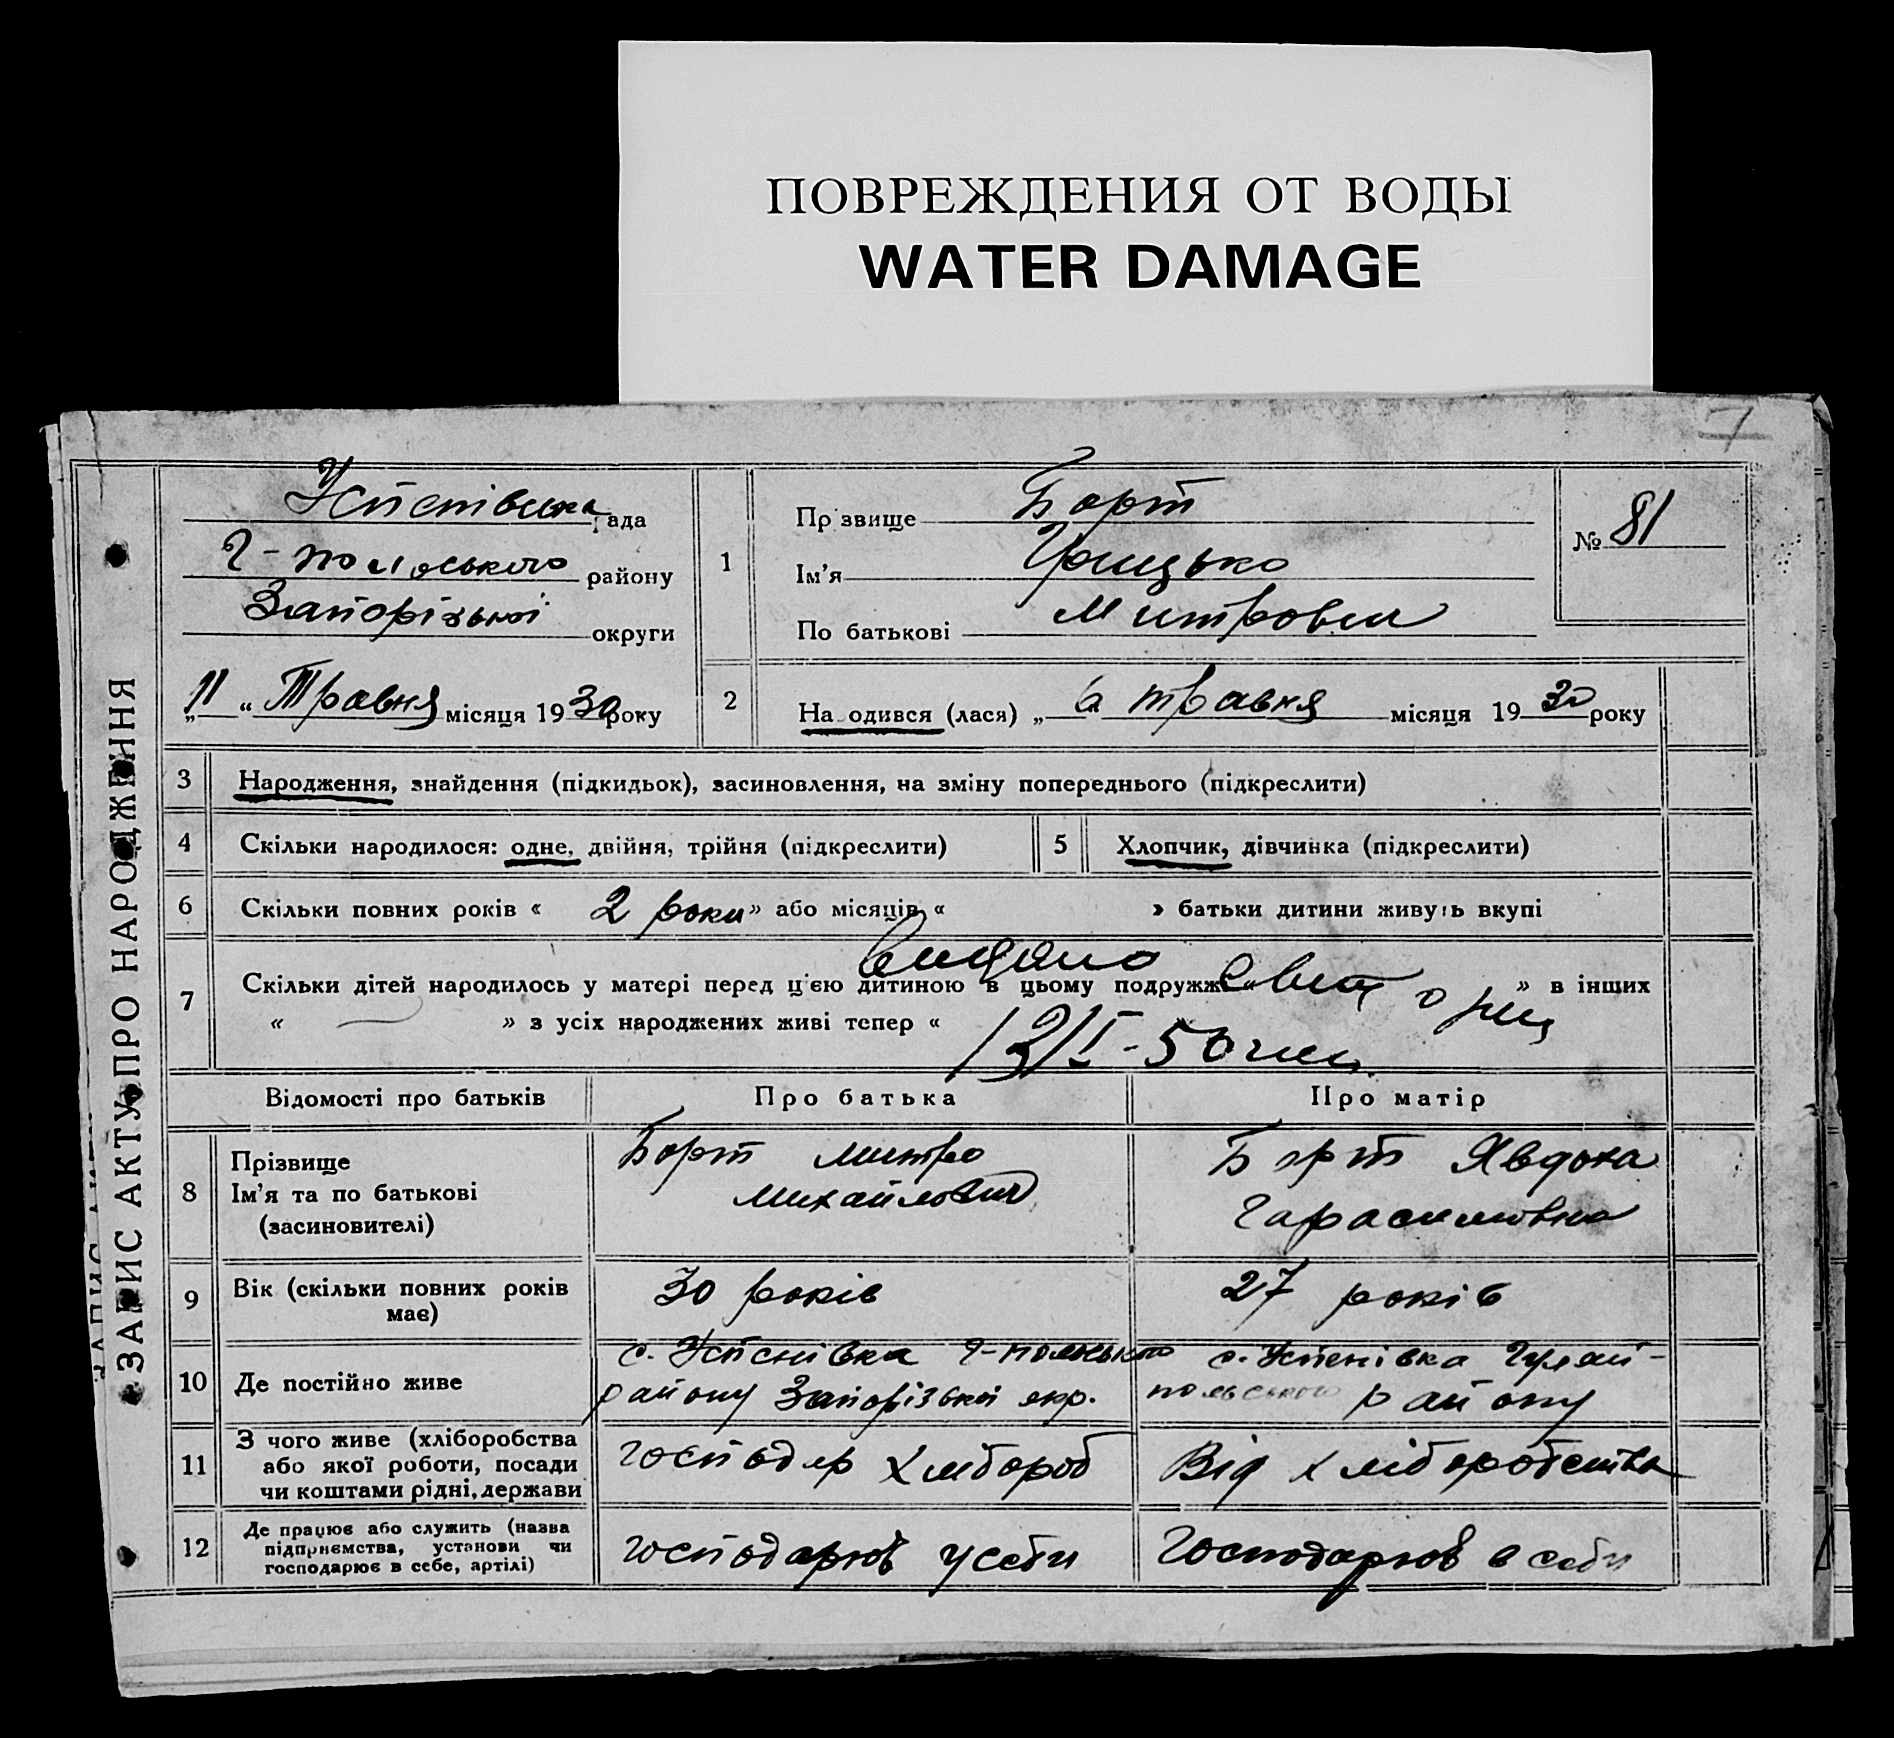 ПОВРЕЖДЕНИЯ ОТ ВОДЫ
WATER DAMAGE
7
ЗАПИС АКТУ ПРО НАРОДЖЕННЯ
Успенівська рада
Г-польського району
Запорізької округи
„11“ Травня місяця 1930 року
1
Прізвище Борт
Ім'я Грицько
По батькові Митрович
№ 81
2
Народився (лася) „6“ травня місяця 1930 року
3 Народження, знайдення (підкидьок), засиновлення, на зміну попереднього (підкреслити)
4 Скільки народилося: одне, двійня, трійня (підкреслити)
5 Хлопчик, дівчинка (підкреслити)
6 Скільки повних років « 2 роки » або місяців « » батьки дитини живуть вкупі
видано
7 Скільки дітей народилось у матері перед цією дитиною в цьому подружжі « » в інших
« — » з усіх народжених живі тепер «
Відомості про батьків
Про батька
Про матір
8 Прізвище
Ім'я та по батькові
(засиновителі)
Борт Митро
Михайлович
Борт Явдоха
Гарасимовна
9 Вік (скільки повних років
має)
30 років
27 років
10 Де постійно живе
с. Успенівка Г-польського
району Запорізької окр.
с. Успенівка Гуляй-
польського району
11 З чого живе (хліборобства
або якої роботи, посади
чи коштами рідні, держави
господар хлібороб
Від хліборобства
12 Де працює або служить (назва
підприємства, установи чи
господарює в себе, артілі)
господарює у себи
Господарює в себи